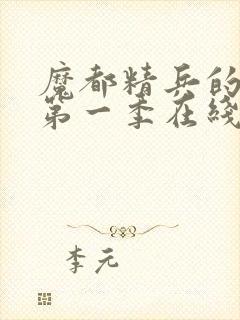 魔都精兵的
第一季在线
李元